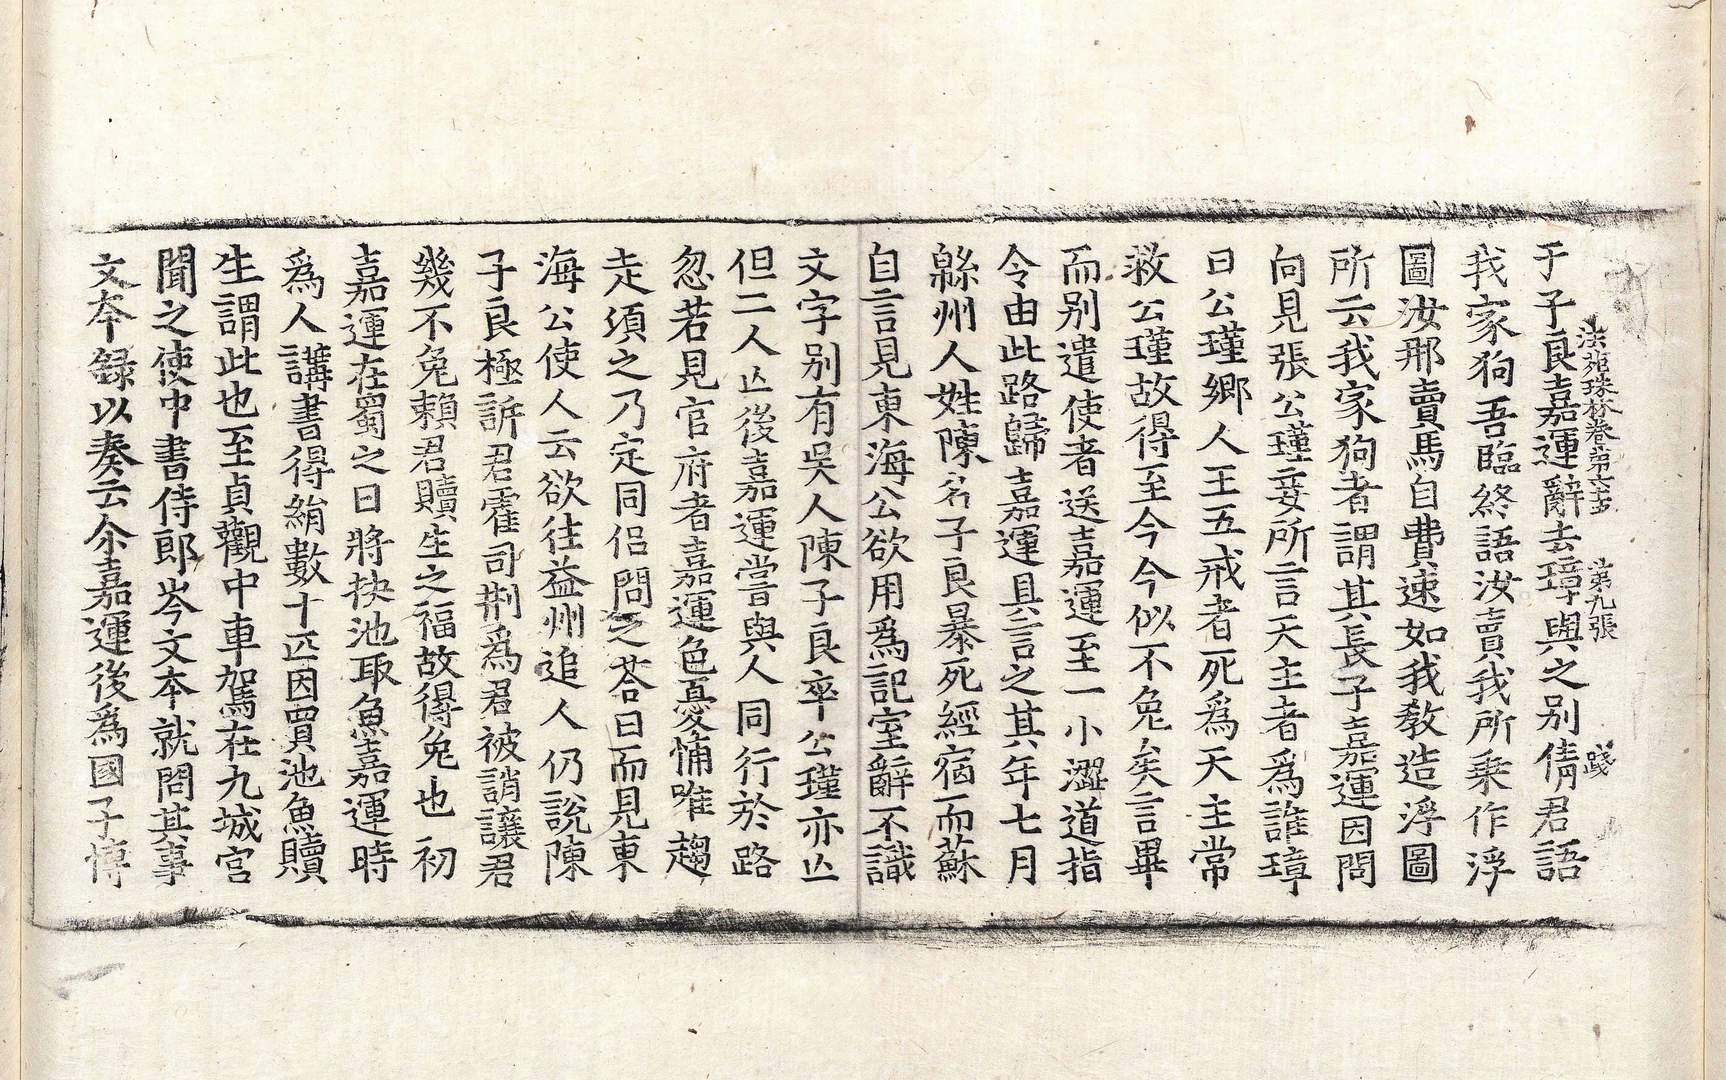 法苑珠林卷第六十五 第九張 踐
于子良嘉運辭去璋與之別倩君語
我家狗吾臨終語汝賣我所乗作浮
圖汝那賣馬自費速如我敎造浮圖
所云我家狗者謂其長子嘉運因問
向見張公瑾妾所言天主者爲誰璋
曰公瑾鄉人王五戒者死爲天主常
救公瑾故得至今今似不免矣言畢
而别遣使者送嘉運至一小澀道指
令由此路歸嘉運具言之其年七月
緜州人姓陳名子良暴死經宿而蘇
自言見東海公欲用爲記室辭不識
文字别有吳人陳子良卒公瑾亦亾
但二人亾後嘉運嘗與人同行於路
忽若見官府者嘉運色憂怖唯趨
走須之乃定同侣問之荅曰而見東
海公使人云欲往益州追人仍說陳
子良極訴君霍司刑爲君被誚讓君
幾不免賴君贖生之福故得免也初
嘉運在蜀之日將抰池取魚嘉運時
爲人講書得絹數十匹因買池魚贖
生謂此也至貞觀中車駕在九城宮
聞之使中書侍郎岑文夲就問其事
文夲録以奏云尒嘉運後爲國子博